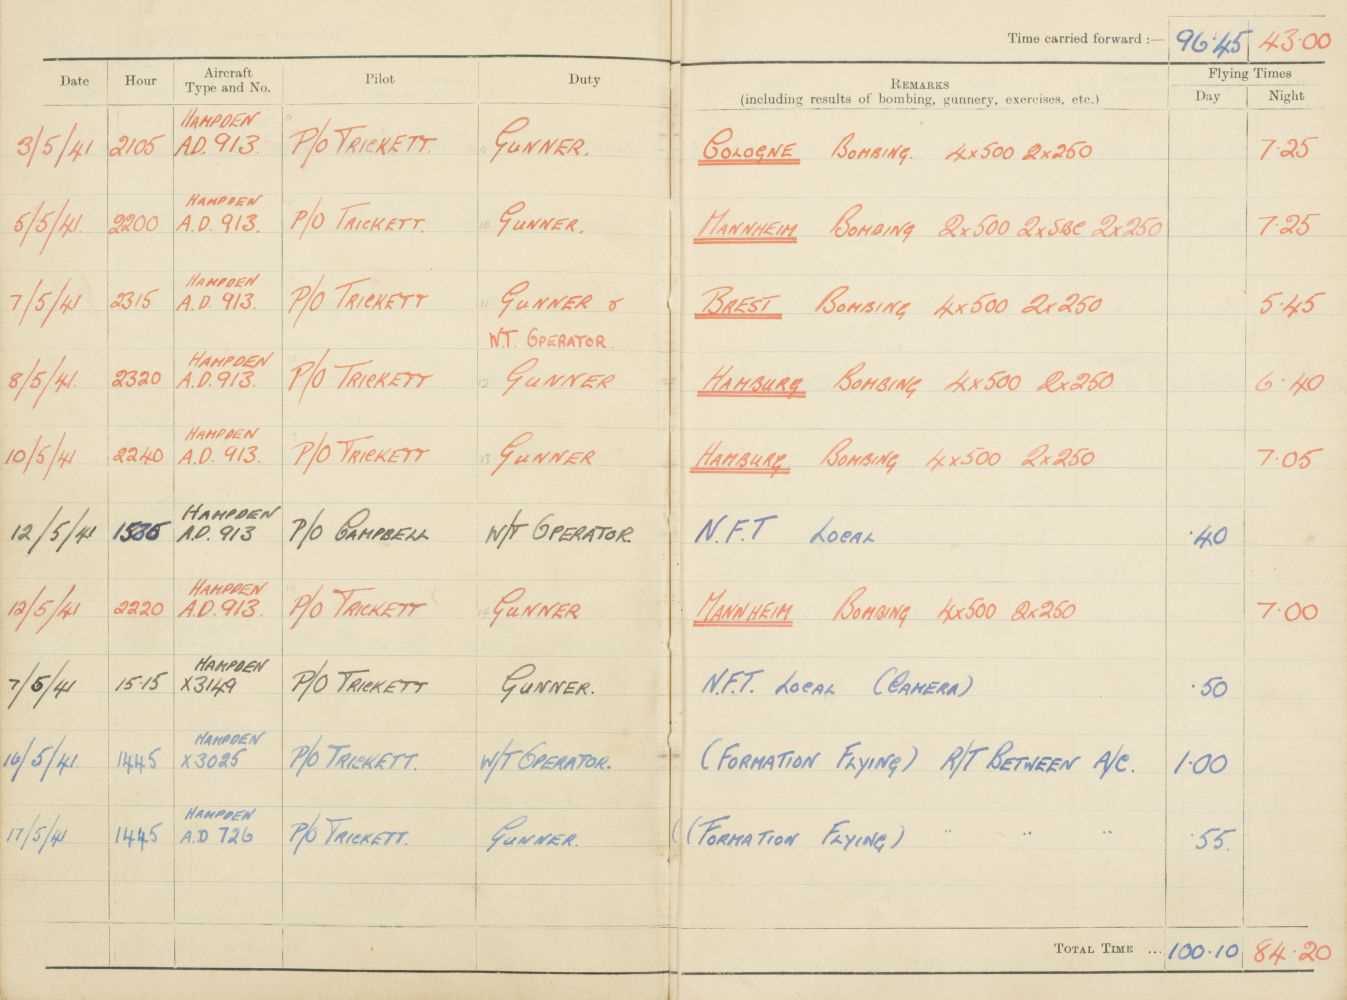 Time carried forward :— 96·45 43·00
Date Hour Aircraft Type and No. Pilot Duty REMARKS (including results of bombing, gunnery, exercises, etc.) Flying Times Day Night
3/5/41 2105 HAMPDEN A.D. 913. P/O TRICKETT. GUNNER. COLOGNE BOMBING. 4x500 2x250 7·25
5/5/41. 2200 HAMPDEN A.D. 913. P/O TRICKETT. GUNNER. MANNHEIM BOMBING 2x500 2xSBC 2x250 7·25
7/5/41 2315 HAMPDEN A.D. 913. P/O TRICKETT GUNNER & BREST BOMBING 4x500 2x250 5·45
W.T. OPERATOR
8/5/41. 2320 HAMPDEN A.D. 913. P/O TRICKETT GUNNER HAMBURG BOMBING 4x500 2x250 6·40
10/5/41 2240 HAMPDEN A.D. 913. P/O TRICKETT GUNNER HAMBURG BOMBING 4x500 2x250 7·05
12/5/41 HAMPDEN A.D. 913 P/O CAMPBELL W/T OPERATOR. N.F.T LOCAL ·40
12/5/41 2220 HAMPDEN A.D. 913. P/O TRICKETT GUNNER MANNHEIM BOMBING 4x500 2x250 7·00
7/5/41 15·15 HAMPDEN X3149 P/O TRICKETT GUNNER. N.F.T. LOCAL (CAMERA) ·50
16/5/41. 1445 HAMPDEN X3025 P/O TRICKETT. W/T OPERATOR. (FORMATION FLYING) R/T BETWEEN A/C. 1·00
17/5/41 1445 HAMPDEN A.D 726 P/O TRICKETT. GUNNER. ((FORMATION FLYING) " " " ·55.
TOTAL TIME ... 100·10 84·20